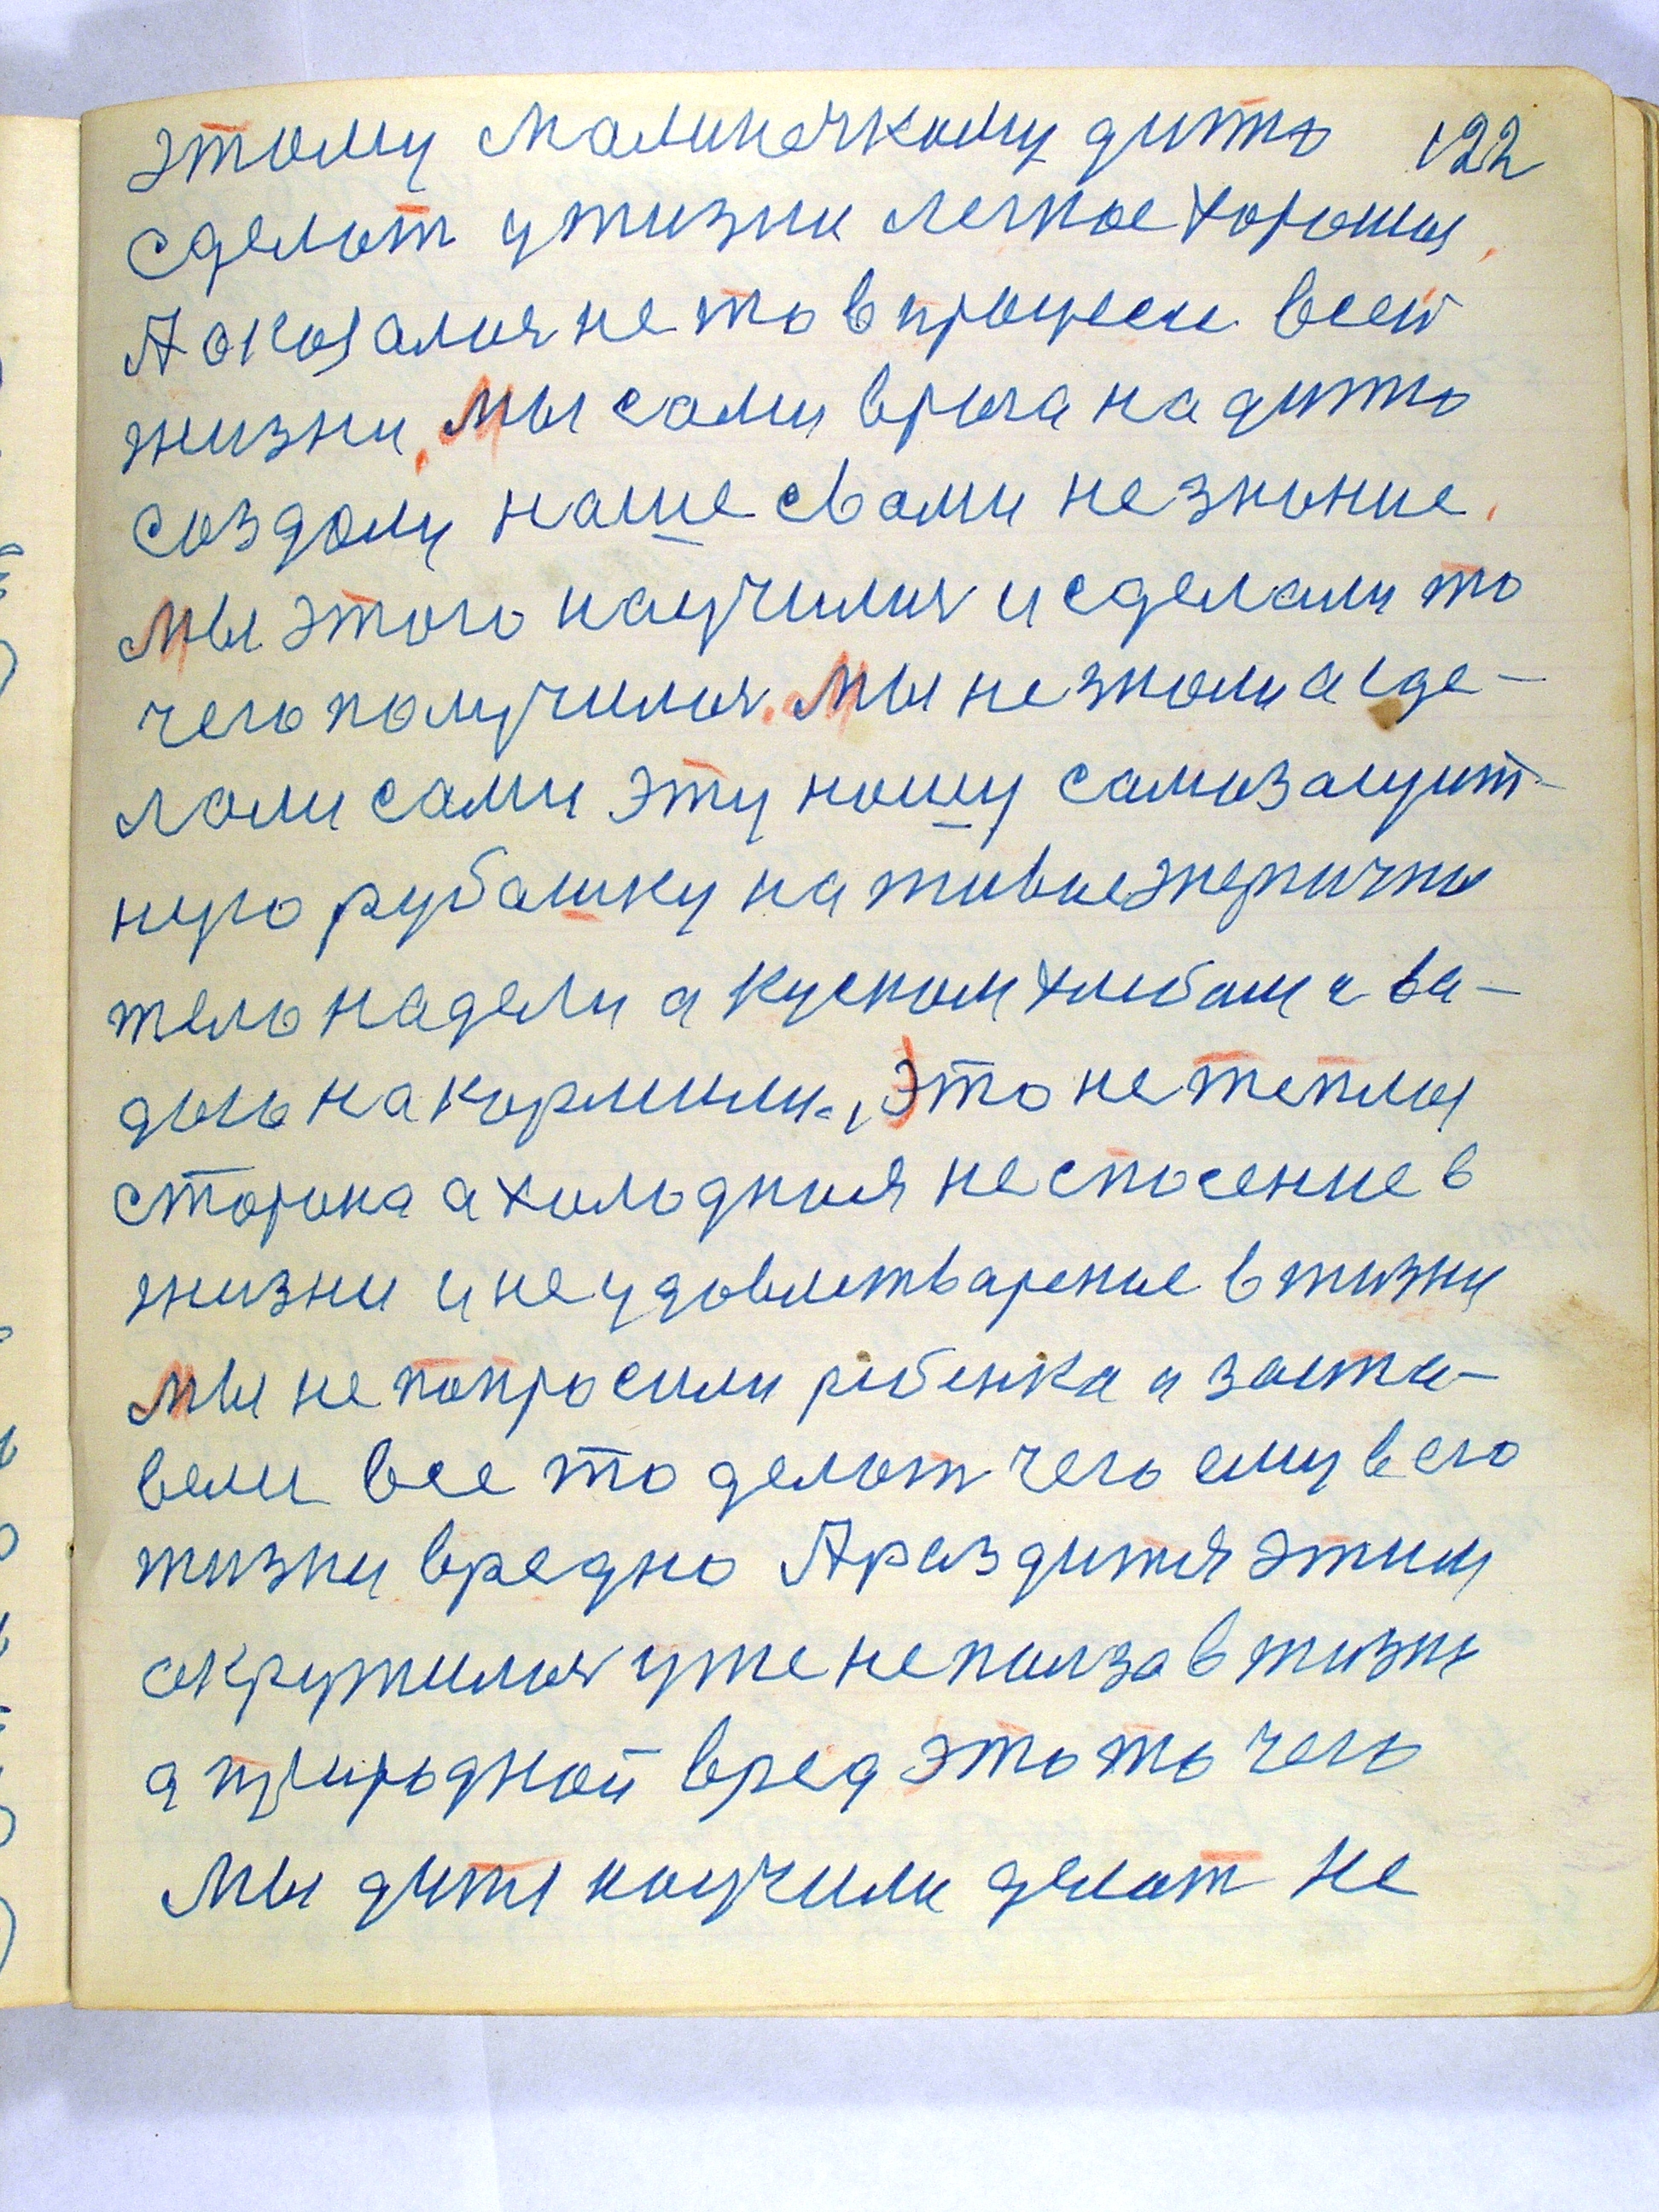 этому малинечкому дитю 122
сделат у жизни легкое хорошия.
А оказалося не то в процесси всей
жизни. Мы сами врага на дитю
создали наше с вами не знание.
Мы этого научилися и сделали то
чего получилося. Мы не знали а сде-
лали сами эту нашу самозащит-
ную рубашку на живое энергичное
тело надели а куском хлебам и ва-
дою накормили. Это не теплая
сторона а холодная не спосение в
жизни и не удовлетварение в жизни
Мы не попросили ребенка а заста-
вели все то делат чего ему в его
жизни вредно А раз дитя этим
окружилося уже не полза в жизни
а природной вред это то чего
Мы дитя научили делат не